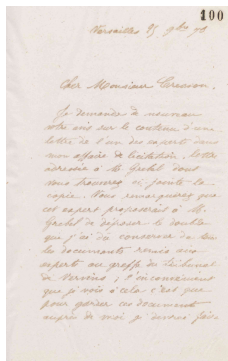 100
Versailles 25 9bre 78
Cher Monsieur
Je demande de nouveau
votre avis sur le contenu d'une
lettre de l'un des experts dans
mon affaire de licitation, lettre
adressée à M. dont
vous trouverez ci jointe la
copie. Vous remarquerez que
cet expert proposerait à M.
de déposer le double
que j'ai dû conserver de tous
les documents remis aux
experts au greffe du tribunal
de Vervins ; l'inconvénient
que je vois à cela c'est que
pour garder ces documents
auprès de moi je devrais faire